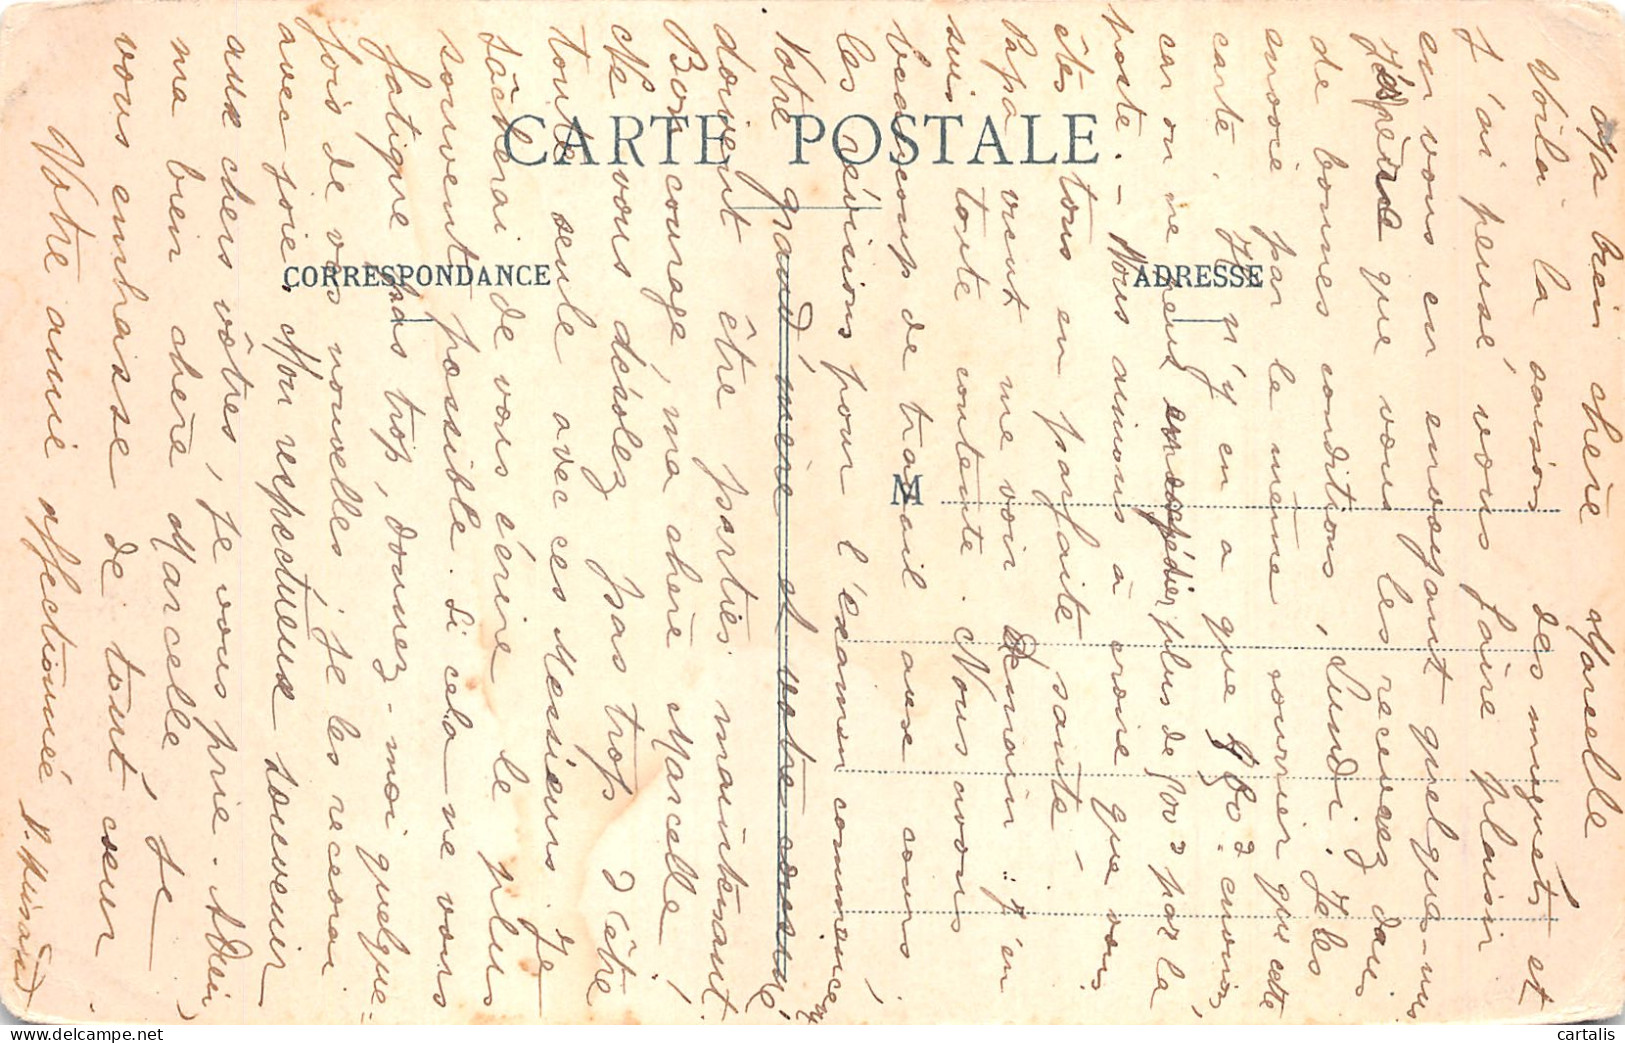 CARTE POSTALE
CORRESPONDANCE
ADRESSE
M
Ma bien chère Marcelle
Voilà la saison des muguets et
j'ai pensé vous faire plaisir
en vous en envoyant quelques-uns
J'espère que vous les recevrez dans
de bonnes conditions, Lundi. Je les
envoie par le même courrier que cette
carte. Il n'y en a que 480? environ,
car on ne peut en expédier plus de 500? par la
poste. – Nous aimons à croire que vous
êtes tous en parfaite santé.
Papa vient me voir demain : j'en
suis toute contente. Nous avons
beaucoup de travail avec cours,
les révisions pour l'examen commencent
Votre grand'mère et votre cousine
doivent être parties maintenant.
Bon courage ma chère Marcelle !
Ne vous désolez pas trop d'être
toute seule avec ces Messieurs. Je
tâcherai de vous écrire le plus
souvent possible. Si cela ne vous
fatigue pas trop, donnez-moi quelque-
fois de vos nouvelles, je les recevrai
avec joie. Mon respectueux souvenir
aux chers vôtres, je vous prie. Adieu,
ma bien chère Marcelle, je
vous embrasse de tout cœur.
Votre amie affectionnée
cartalis